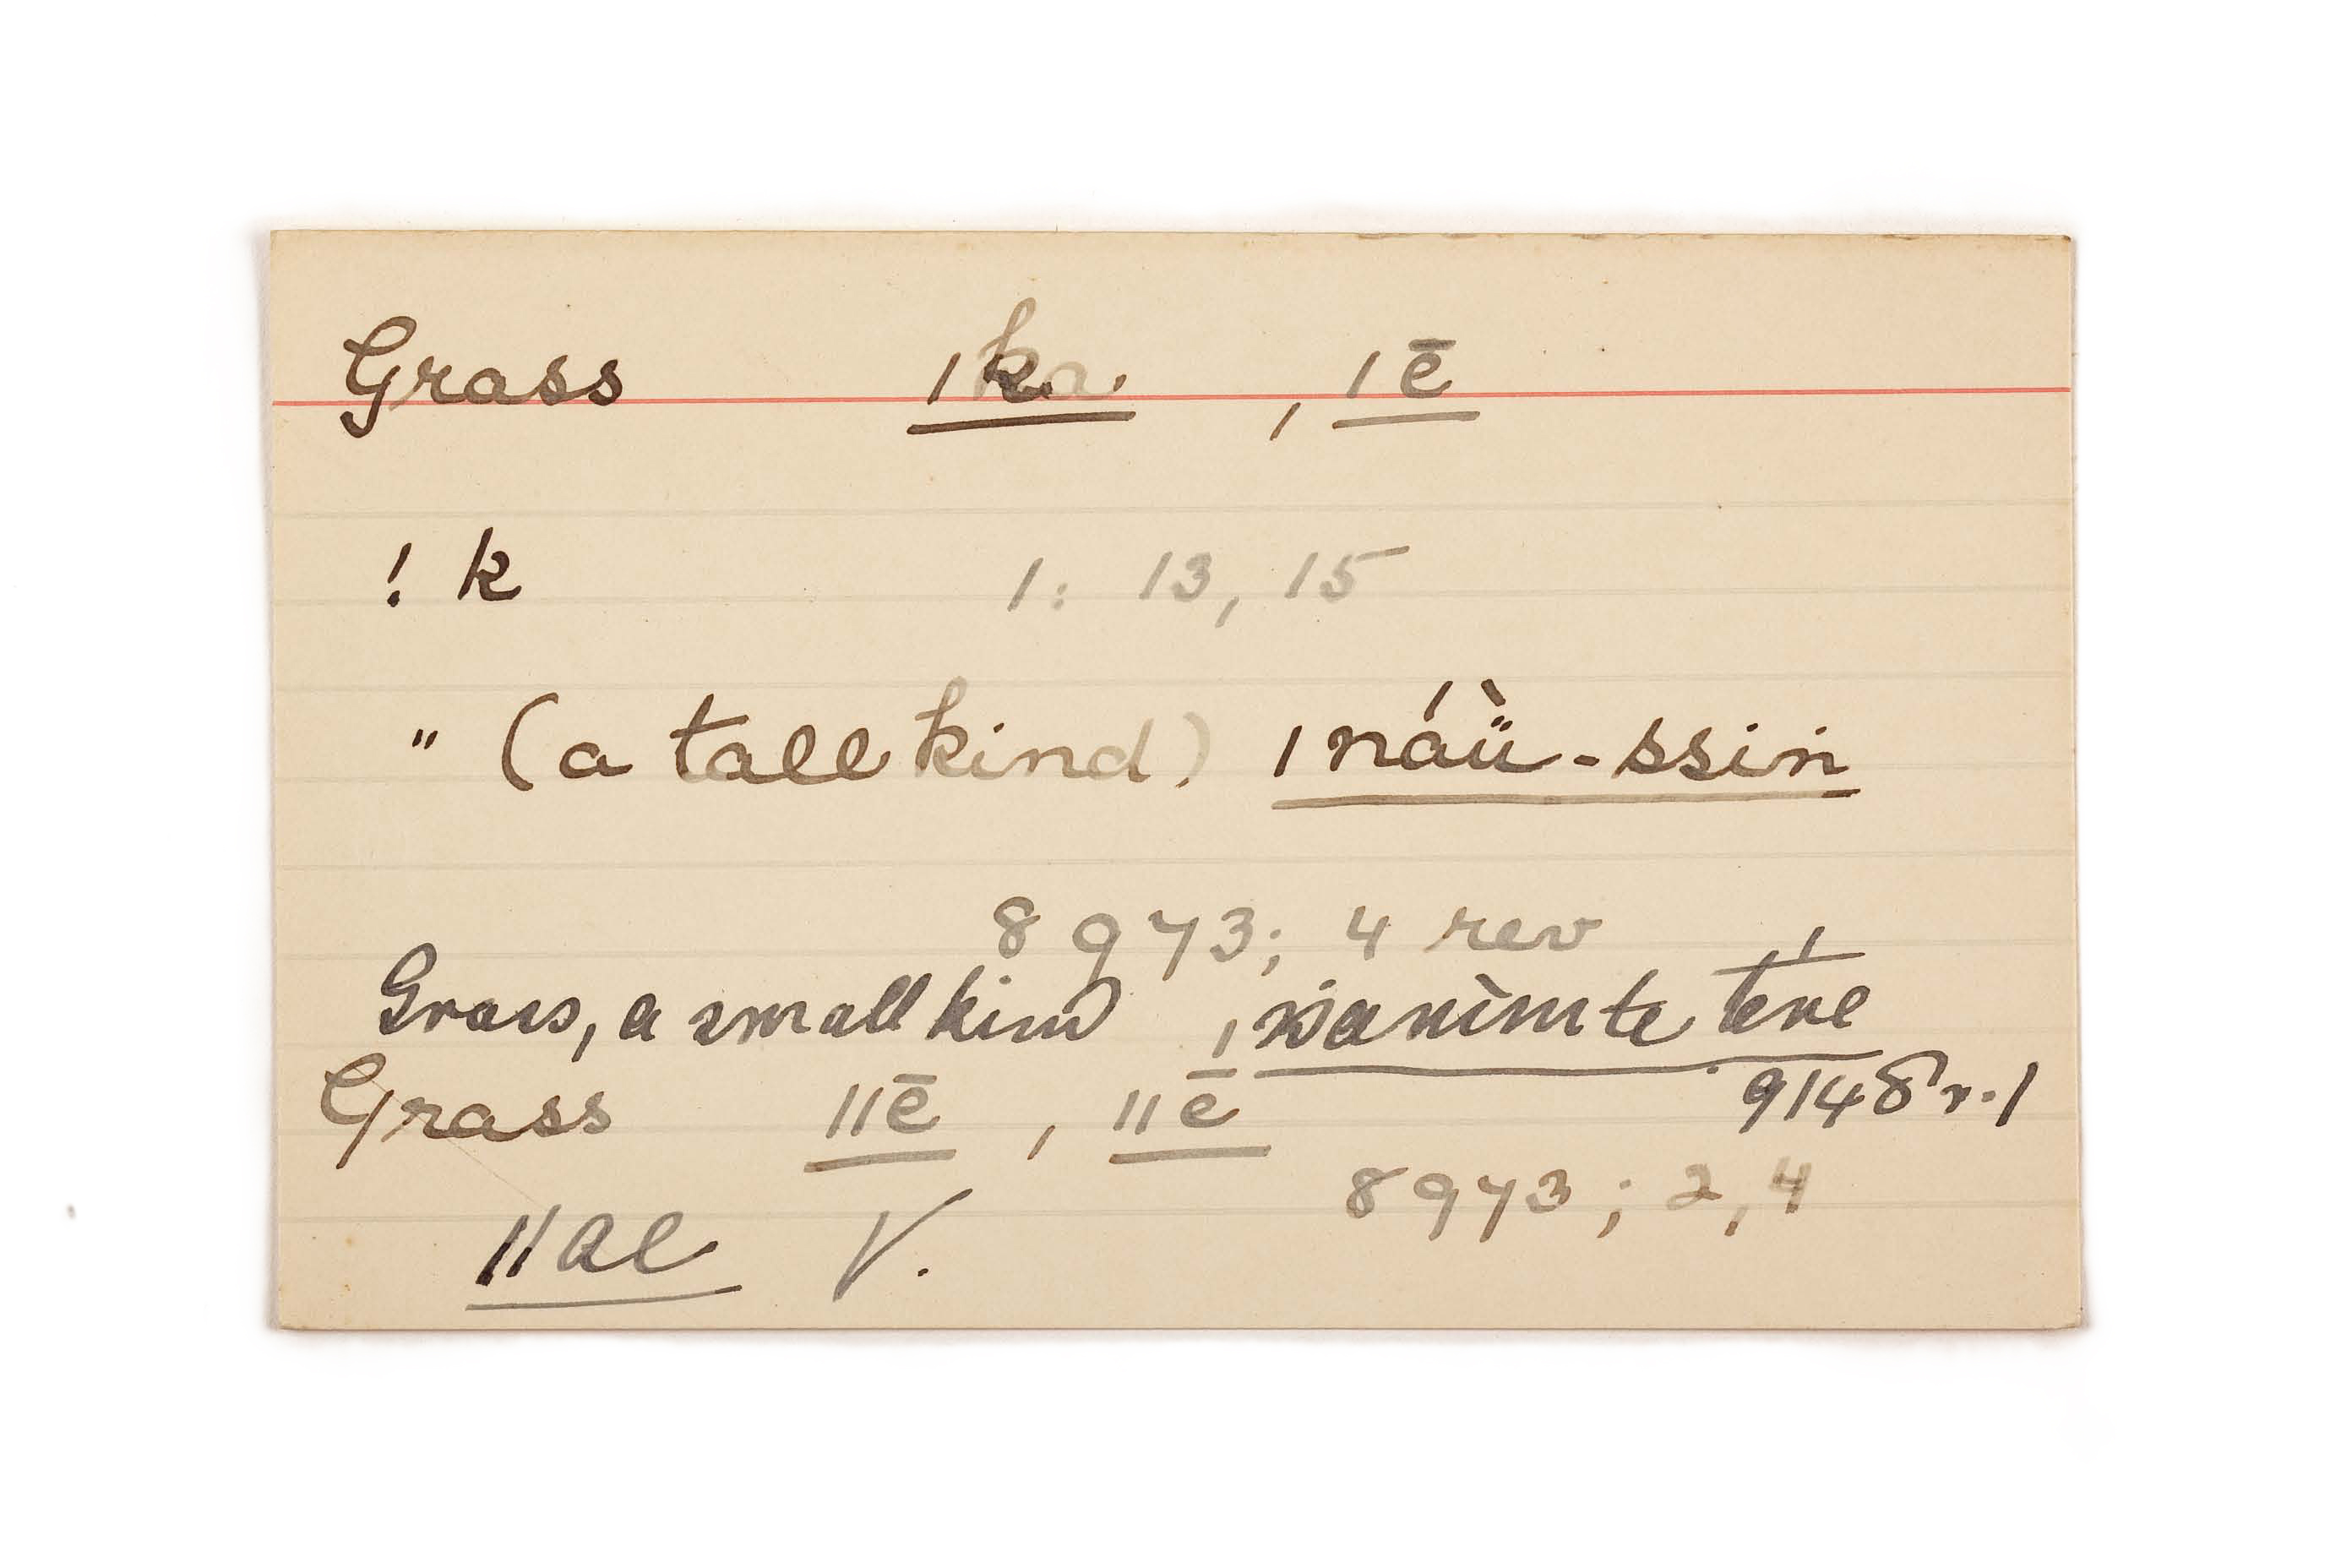 Grass ǀka, ǀē
! k 1: 13, 15
" (a tall kind) ǀnáǜ-ssiṅ
8973; 4 rev
Grass, a small kind
Grass ǁē, ǁē 9148 r.1
8973; 2, 4
ǁae V.